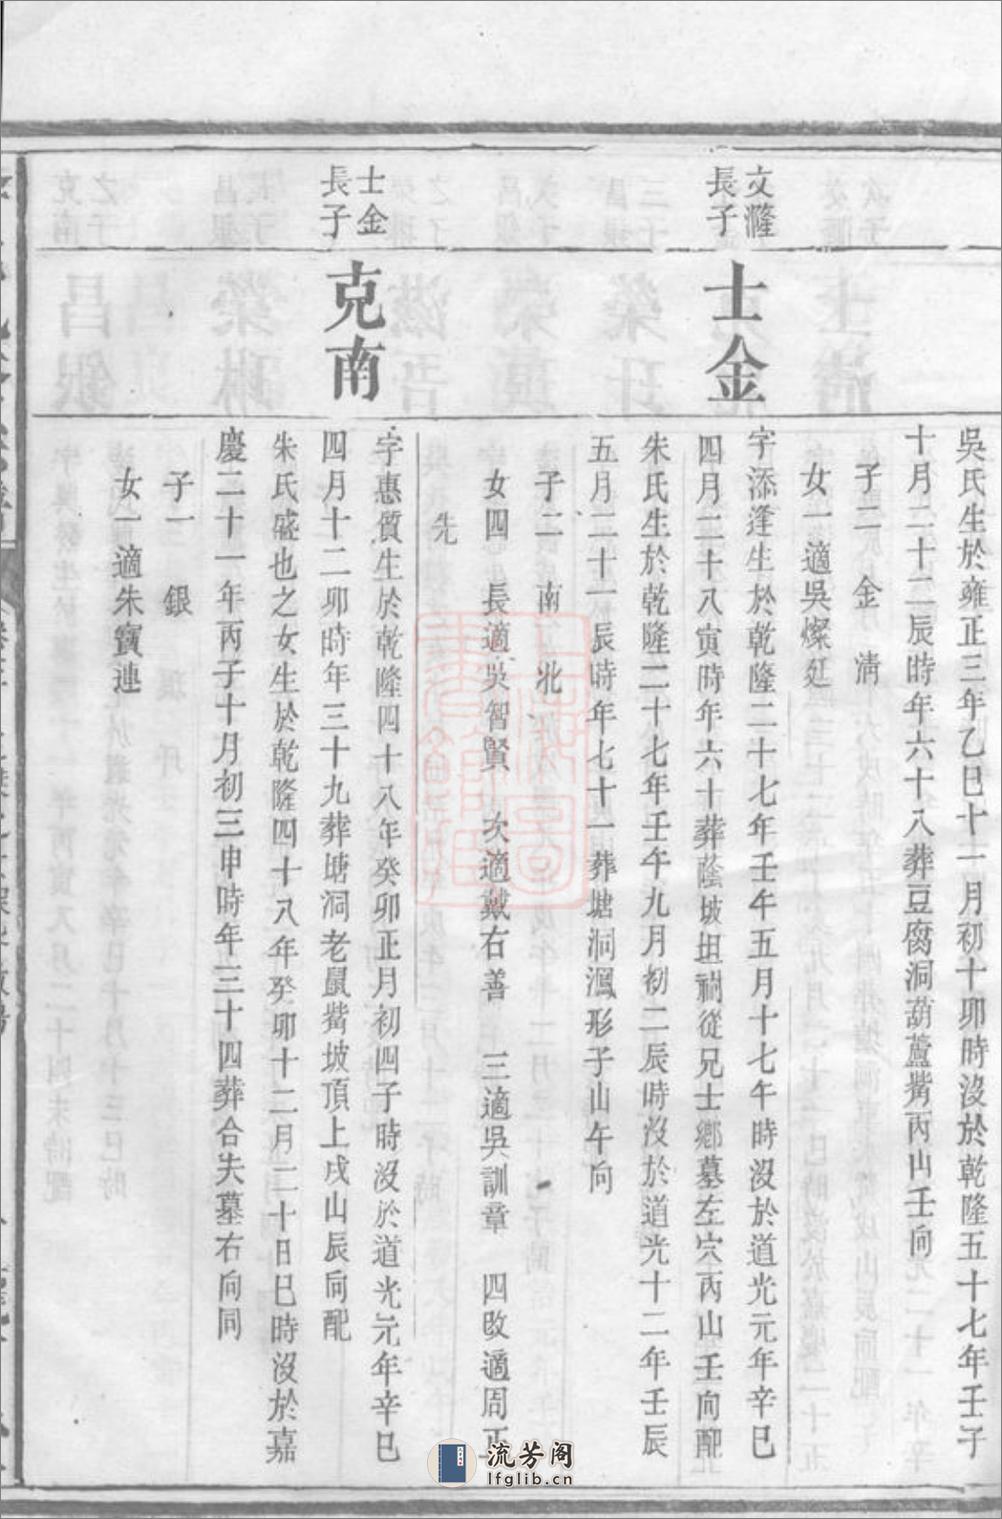 吳氏生於雍正三年乙巳十一月初十卯時沒於乾隆五十七年壬子
十月二十二辰時年六十八葬豆腐洞葫蘆觜丙山壬向
子二　金　清
女一適吳燦廷
文瀠
長子
士金
字添逢生於乾隆二十七年壬午五月十七午時沒於道光元年辛巳
四月二十八寅時年六十葬蔭坡坦祠從兄士鄉墓左穴丙山壬向配
朱氏生於乾隆二十七年壬午九月初二辰時沒於道光十二年壬辰
五月二十一辰時年七十一葬塘洞形子山午向
子二　南　北
女四　長適吳智賢　次適戴右善　三適吳訓章　四改適周正
先
士金
長子
克南
字惠質生於乾隆四十八年癸卯正月初四子時沒於道光元年辛巳
四月十二卯時年三十九葬塘洞老鼠觜坡頂上戌山辰向配
朱氏盛也之女生於乾隆四十八年癸卯十二月二十日巳時沒於嘉
慶二十一年丙子十月初三申時年三十四葬合夫墓右向同
子一　銀
女一適朱寶連
流芳阁
lfglib.cn